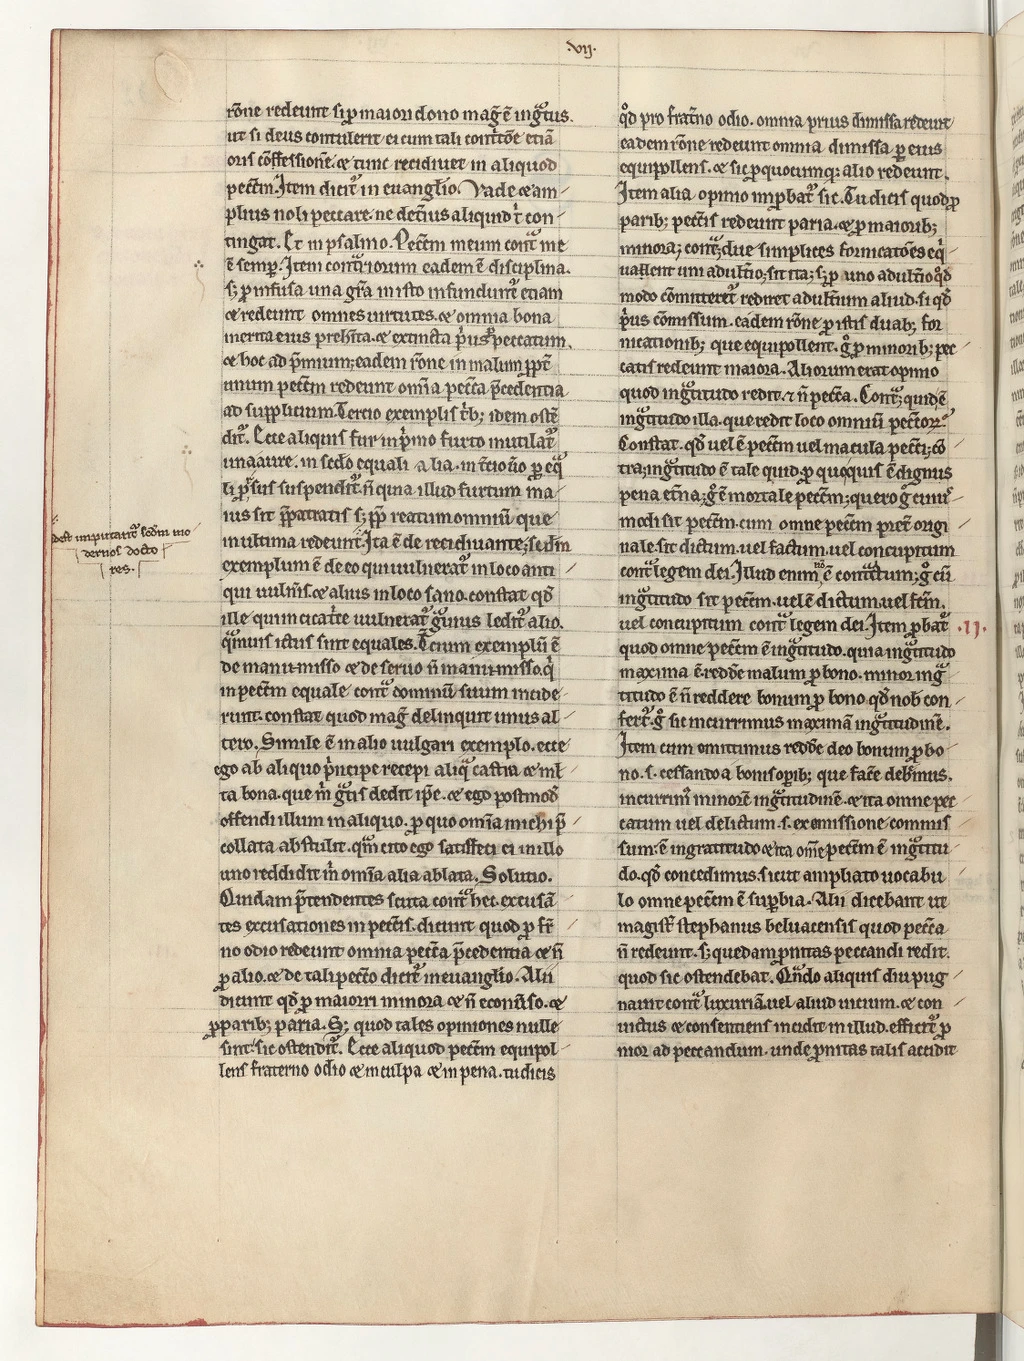 .vij.
rōne redeunt si ꝑ maiori dono mag̅ ē ing͛tus.
ut si deus contulerit ei cum tali cont̄tōe etiā
oris cōfessionē. ⁊ tunc recidiuet in aliquod
pecc̄m. Item dicit͛ in euanglio. Vade ⁊ am
plius noli peccare. ne det̄ius aliquid t̄ con
tingat. Et in psalmo. Pecc̄m meum cont͛ me
ē semꝑ. Item cont͛riorum eadem ē disciplina.
sꝫ ꝑ infusa una gr̄a in isto infundunt͛ etiam
⁊ redeunt omnes uirtutes. ⁊ omnia bona
merita eius preh̄ita. ⁊ extincta p̄us ꝑ peccatum.
⁊ hoc ad p̄mium; eadem rōne in malum ꝓpt̄
unum pecc̄m redeunt om̄ia pecc̄a p̄cedentia
ad supplicium. Tercio exemplis t̄bꝫ idem ostē
dit͛. Ecce aliquis fur in p̄mo furto mutilat͛
una aure. in sec̄do equali alia. in t̄cio ūo ꝑ eq͛
li p̄sus suspendit͛. n̄ quia illud furtum ma
ius sit p̄patratis sꝫ ꝓp̄ reatum omniū que
in ultima redeunt. Ita ē de recidiuante. Sec̄dm
exemplum ē de eo qui uulnerat͛ in loco anti
qui uuln̄is. ⁊ alius in loco sano. constat qd̄
ille qui in cicat̄ce uulnerat͛ g͛uius ledit͛ alio.
q͛muis ictus sint equales. T̄cium exemplū ē
de manumisso ⁊ de seruo n̄ manumisso. q̄
in pecc̄m equale cont͛ dominū suum incide
runt. constat quod mag̅ delinquit unus al
tero. Simile ē in alio uulgari exemplo. ecce
ego ab aliquo p̄ncipe recepi aliq͛ castra ⁊ ml̄
ta bona. que m̄ g͛tis dedit ip̄e. ⁊ ego postmod̄
offendi illum in aliquo. ꝑ quo om̄ia michi p̄
collata abstulit. q͛m cito ego satisfeci ei in illo
uno reddidit m̄ om̄ia alia ablata. Solutio.
Quidam p̄tendentes scuta cont͛ hec. excusā
tes excusationes in pecc̄is. dicunt quod ꝑ fr̄
no odio redeunt omnia pecc̄a p̄cedentia ⁊ n̄
ꝑ alio. ⁊ de tali pecc̄o dicit͛ in euanglio. Alii
dicunt qd̄ ꝑ maiori minora ⁊ n̄ econūso. ⁊
ꝑ paribꝫ paria. Sꝫ quod tales opiniones nulle
sint. sic ostendit͛. Ecce aliquod pecc̄m equipol
lens fraterno odio ⁊ in culpa ⁊ in pena. tu dicis
dest imputant͛ scd̄m mo
dernos docto
res.
qd̄ pro frat̄no odio. omnia prius dimissa redeunt
eadem rōne redeunt omnia dimissa ꝑ eius
equipollens. ⁊ sic ꝑ quocumqꝫ alio redeunt.
Item alia opinio improbat͛ sic. Tu dicis quod ꝑ
paribꝫ pecc̄is redeunt paria. ⁊ ꝑ maioribꝫ
minora; cont͛; due simplices fornicatōes eq̄
uallent uni adult̄io; sit ita; sꝫ ꝑ uno adult̄io qd̄
modo cōmitteret͛ rediret adult̄ium aliud. si qd̄
p̄us cōmissum. eadem rōne ꝑ istis duabꝫ for
nicationibꝫ que equipollent. g̊ ꝑ minoribꝫ pec
catis redeunt maiora. Aliorum erat opinio
quod ing͛titudo redit. ⁊ n̄ pecc̄a. Cont͛; quid ē
ing͛titudo illa. que redit loco omniū pecc̄oꝝ.
Constat. qd̄ uel ē pecc̄m uel macula pecc̄i; cō
tra; ing͛titudo ē tale quid. ꝑ quo quis ē dignus
pena et̄na; g̊ ē mortale pecc̄m; quero g̊ cuius
modi sit pecc̄m. cum omne pecc̄m pret̄ origi
nale. sit dictum. uel factum. uel concupitum
cont͛ legem dei. Illud enim n̄ ē cont͛ctum; g̊ cū
ing͛titudo sit pecc̄m. uel ē dictum. uel fc̄m.
uel concupitum cont͛ legem dei. Item ꝓbat͛ .IJ.
quod omne pecc̄m ē ing͛titudo. quia ing͛titudo
maxima ē. redde malum ꝑ bono. minor ing͛
titudo ē n̄ reddere bonum ꝑ bono qd̄ nob̄ con
fert͛. g̊ sic incurrimus maximā ing͛titudinē.
Item cum omittimus redde deo bonum ꝑ bo
no. s. cessando a bonis opibꝫ que fac̄e debemus.
incurrim͛ minorē ing͛titudinē. ⁊ ita omne pec
catum uel delictum. s. ex omissione commis
sum. ē ingratitudo ⁊ ita om̄e pecc̄m ē ing͛titu
do. qd̄ concedimus. sicut ampliato uocabu
lo omne pecc̄m ē supbia. Alii dicebant ut
magist̄ stephanus beluacensis quod pecc̄a
n̄ redeunt. sꝫ quedam ꝓnitas peccandi redit.
quod sic ostendebat. Qn̄do aliquis diu pug
nauit cont͛ luxuriā. uel aliud uicium. ⁊ con
uictus ⁊ consentiens incidit in illud. efficit͛ ꝓ
nior ad peccandum. unde ꝓnitas talis accidit